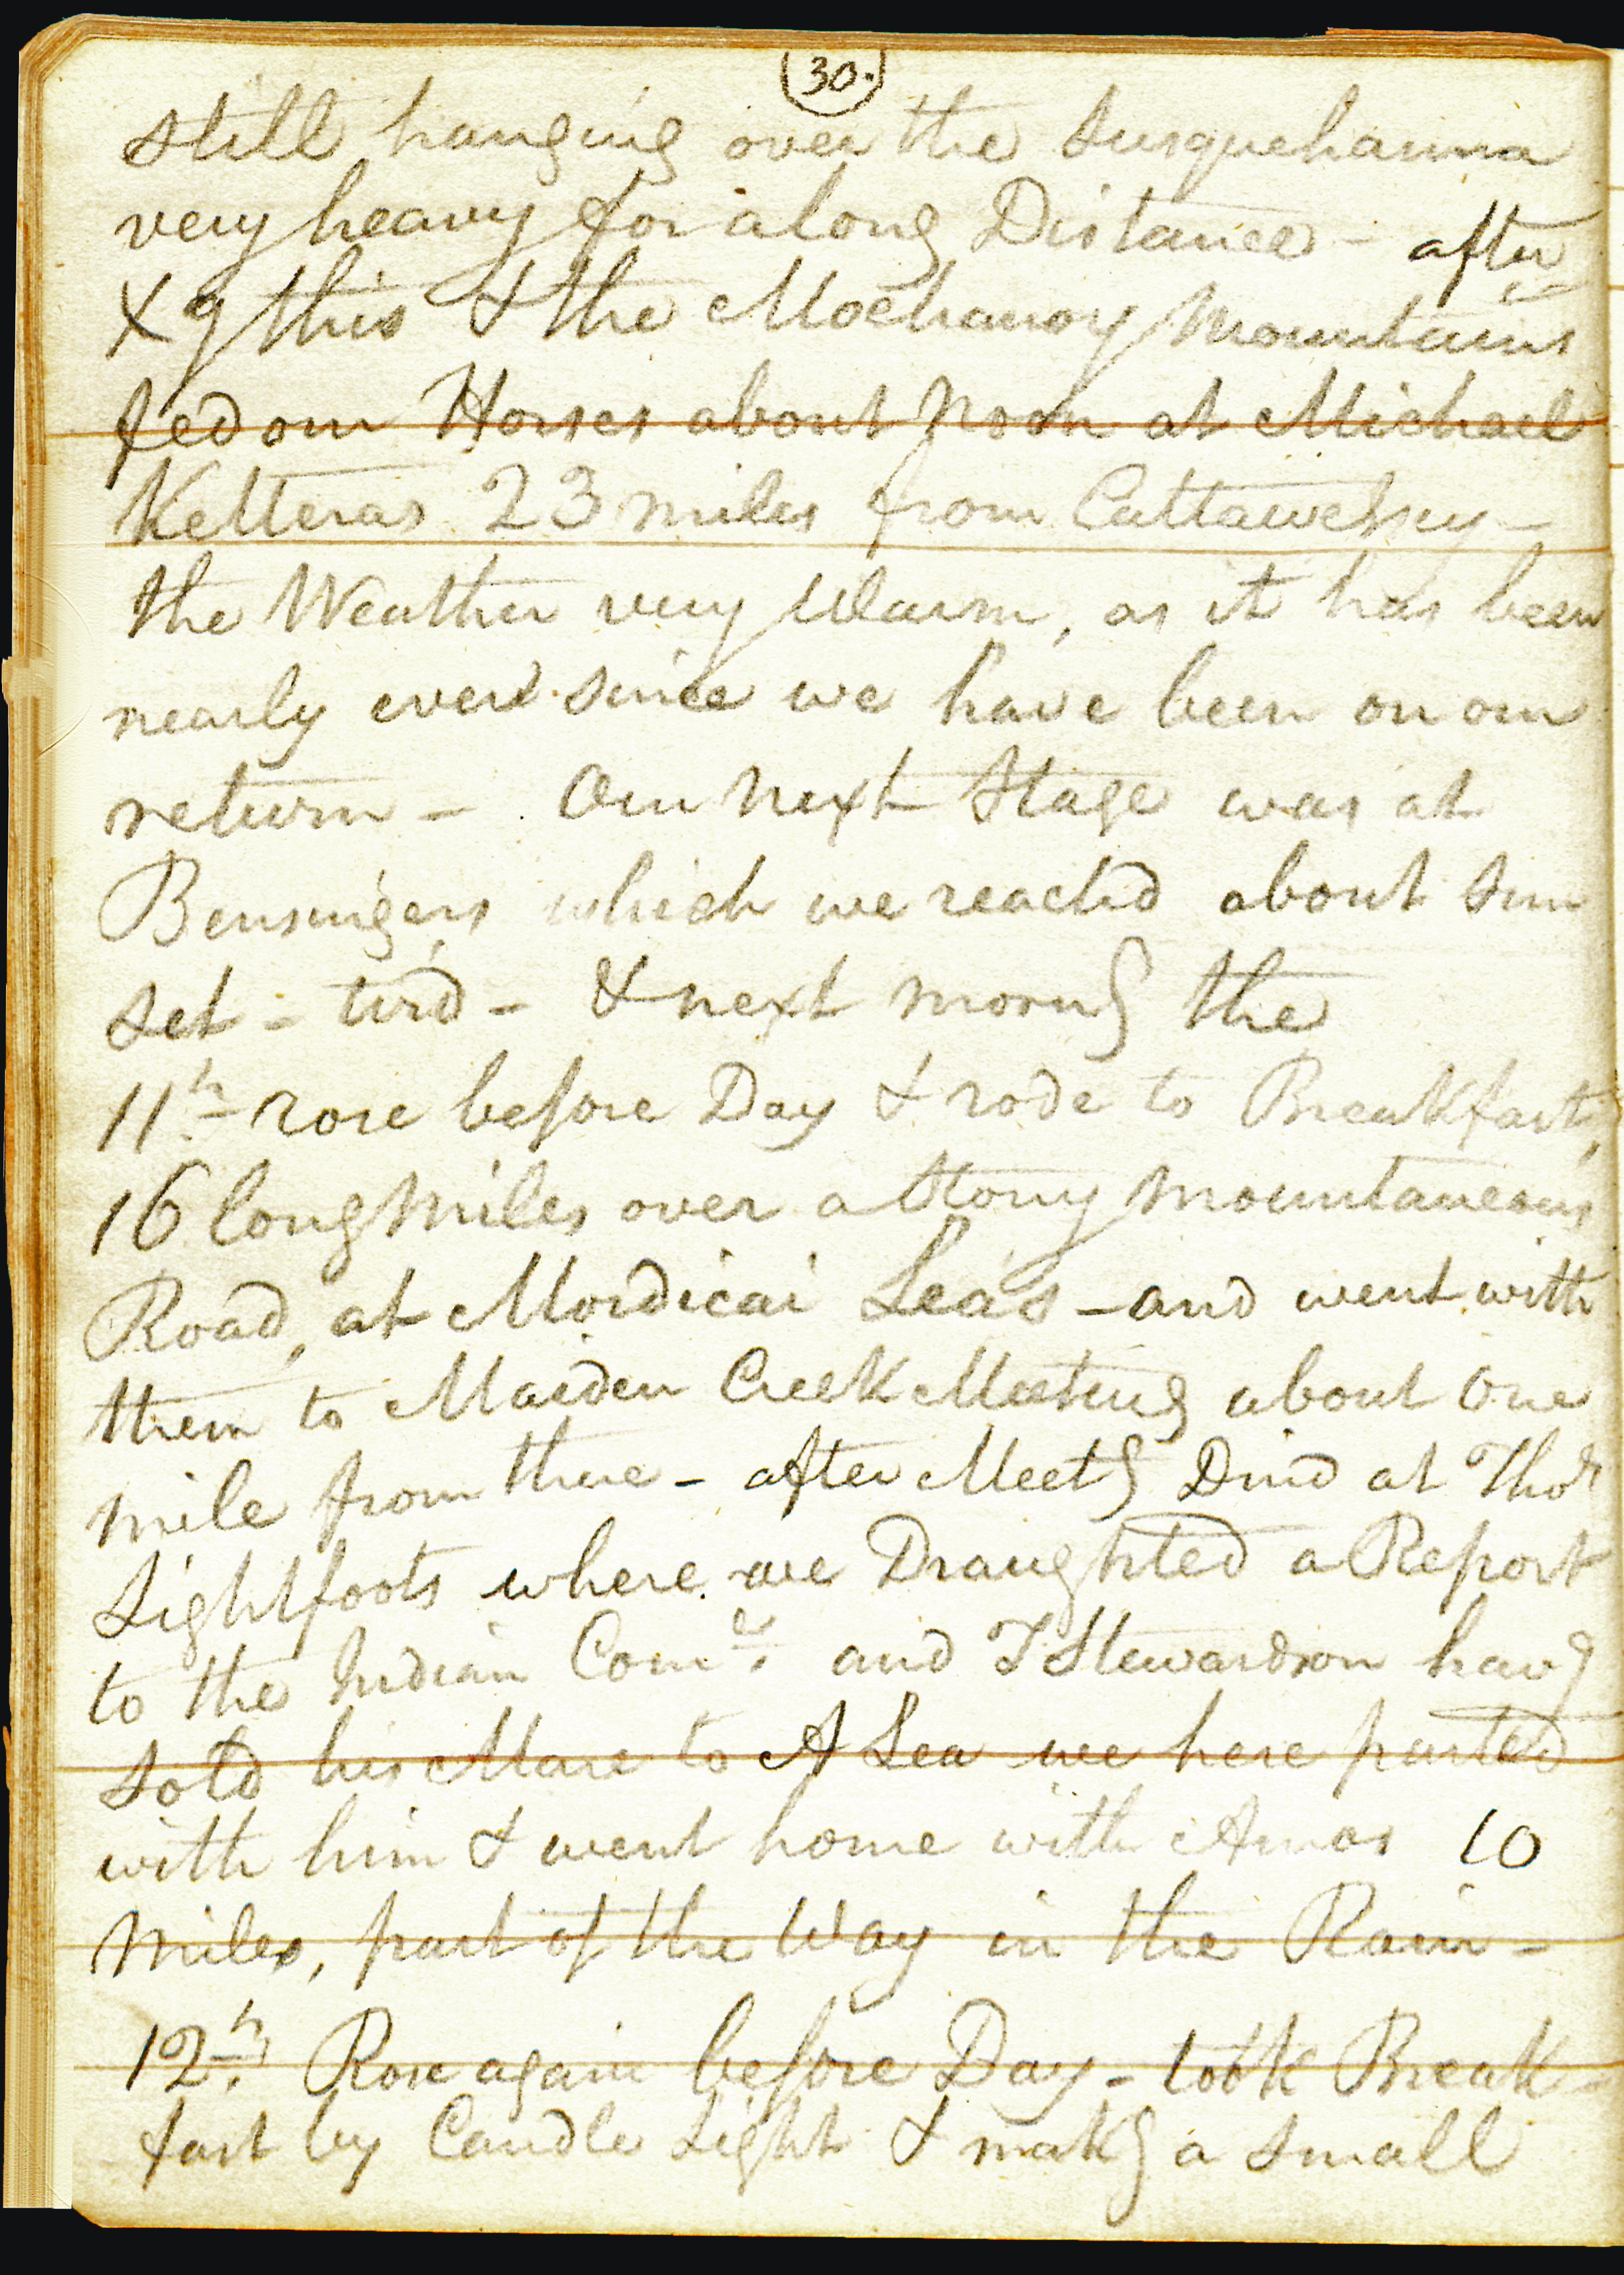 30.
still hanging over the Susquehanna
very heavy for along Distance - after
Xg this & the Mochanoy Mountains
fed our Horses about Noon at Michael
Ketteras 23 miles from Cattawessey -
the Weather very Warm, as it has been
nearly ever since we have been on our
return - Our Next Stage was at
Bensingers which we reach'd about Sun
set - tir'd - & next morng the
11th rose before Day & rode to Breakfast,
16 long Miles over a Stony Mountaneous
Road, at Mordicai Lea's - and went with
them to Maiden Creek Meeting about One
mile from there - after Meetg Din'd at Thos
Lightfoots where we Draughted a Report
to the Indian Comee. and T Stewardson havg
sold his Mare to A Lea we here parted
with him & went home with Amos 10
Miles, part of the Way in the Rain -
12th. Rose again before Day - took Break-
fast by Candle Light & makg a small